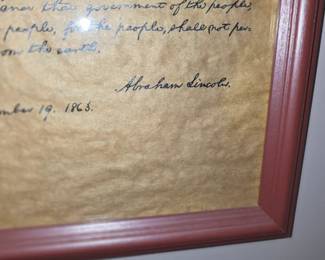 that government of the people,
people, for the people, shall not per-
the earth.
Abraham Lincoln.
19. 1863.